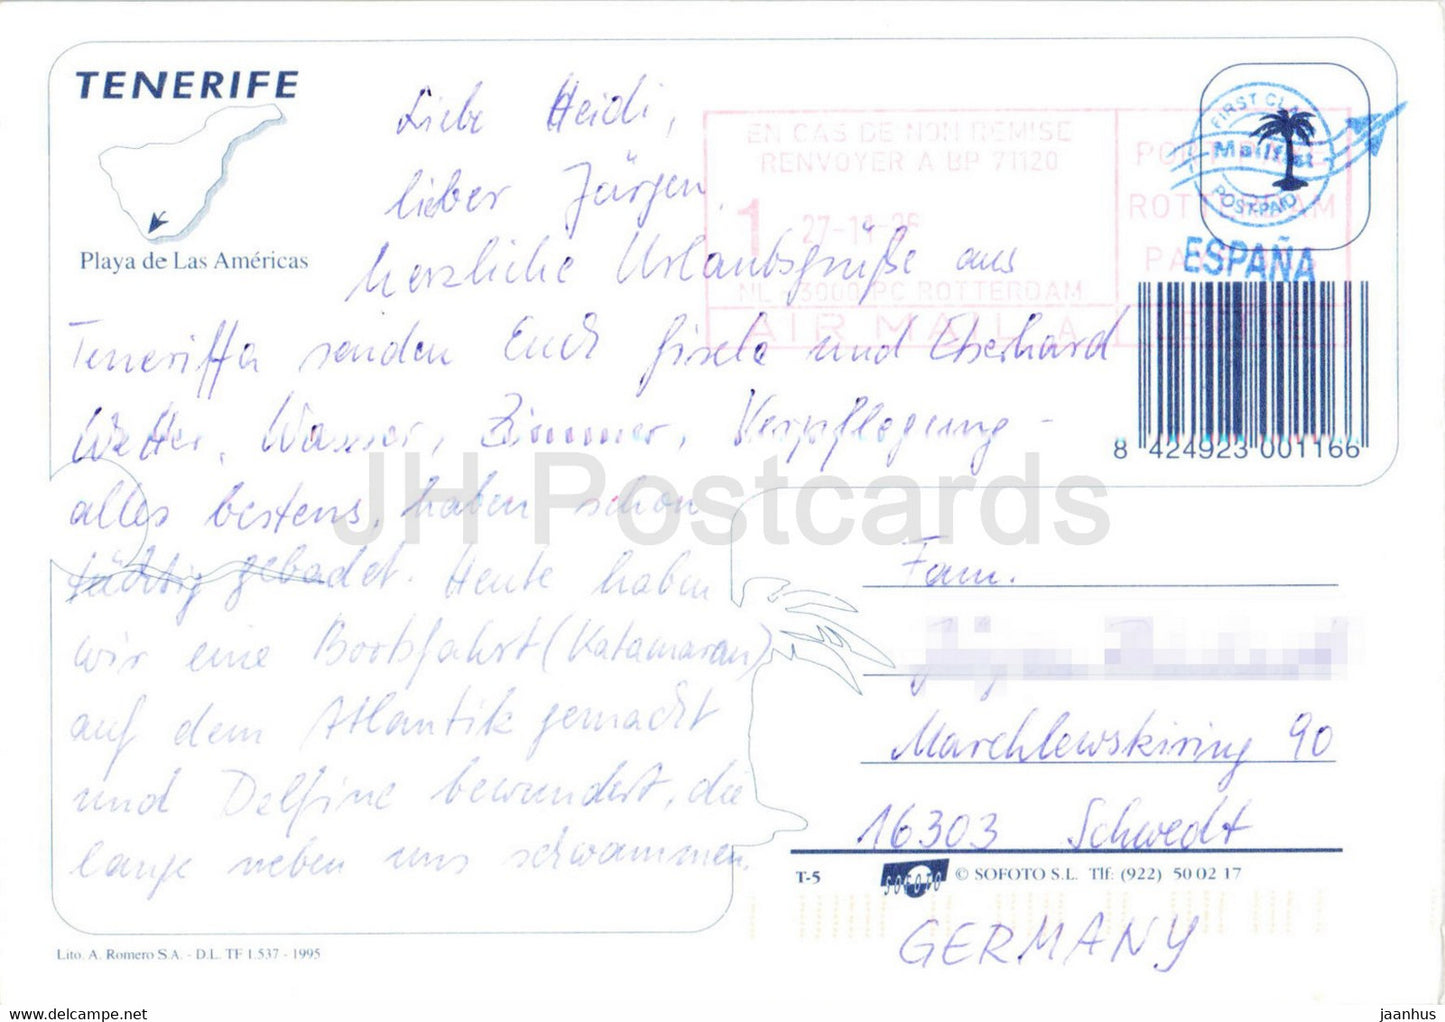 TENERIFE
Playa de Las Américas
Liebe Heidi,
lieber Jürgen,
herzliche Urlaubsgrüße aus
Teneriffa senden Euch Gisela und Eberhard
Wetter, Wasser, Zimmer, Verpflegung -
alles bestens, haben schon
tüchtig gebadet. Heute haben
wir eine Bootsfahrt (Katamaran)
auf dem Atlantik gemacht
und Delfine bewundert, die
lange neben uns schwammen.
EN CAS DE NON REMISE
RENVOYER A BP 71120
1
NL - 3000 PC ROTTERDAM
AIR MAIL A
ROTTERDAM
FIRST CLASS
Mailfast
POST-PAID
ESPAÑA
8 424923 001166
JH Postcards
Fam.
Marchlewskiring 90
16303 Schwedt
T-5 SOFOTO © SOFOTO S.L. Tlf: (922) 50 02 17
GERMANY
Lito. A. Romero S.A. - D.L. TF 1.537 - 1995
hipmunk.ee
jaanhus